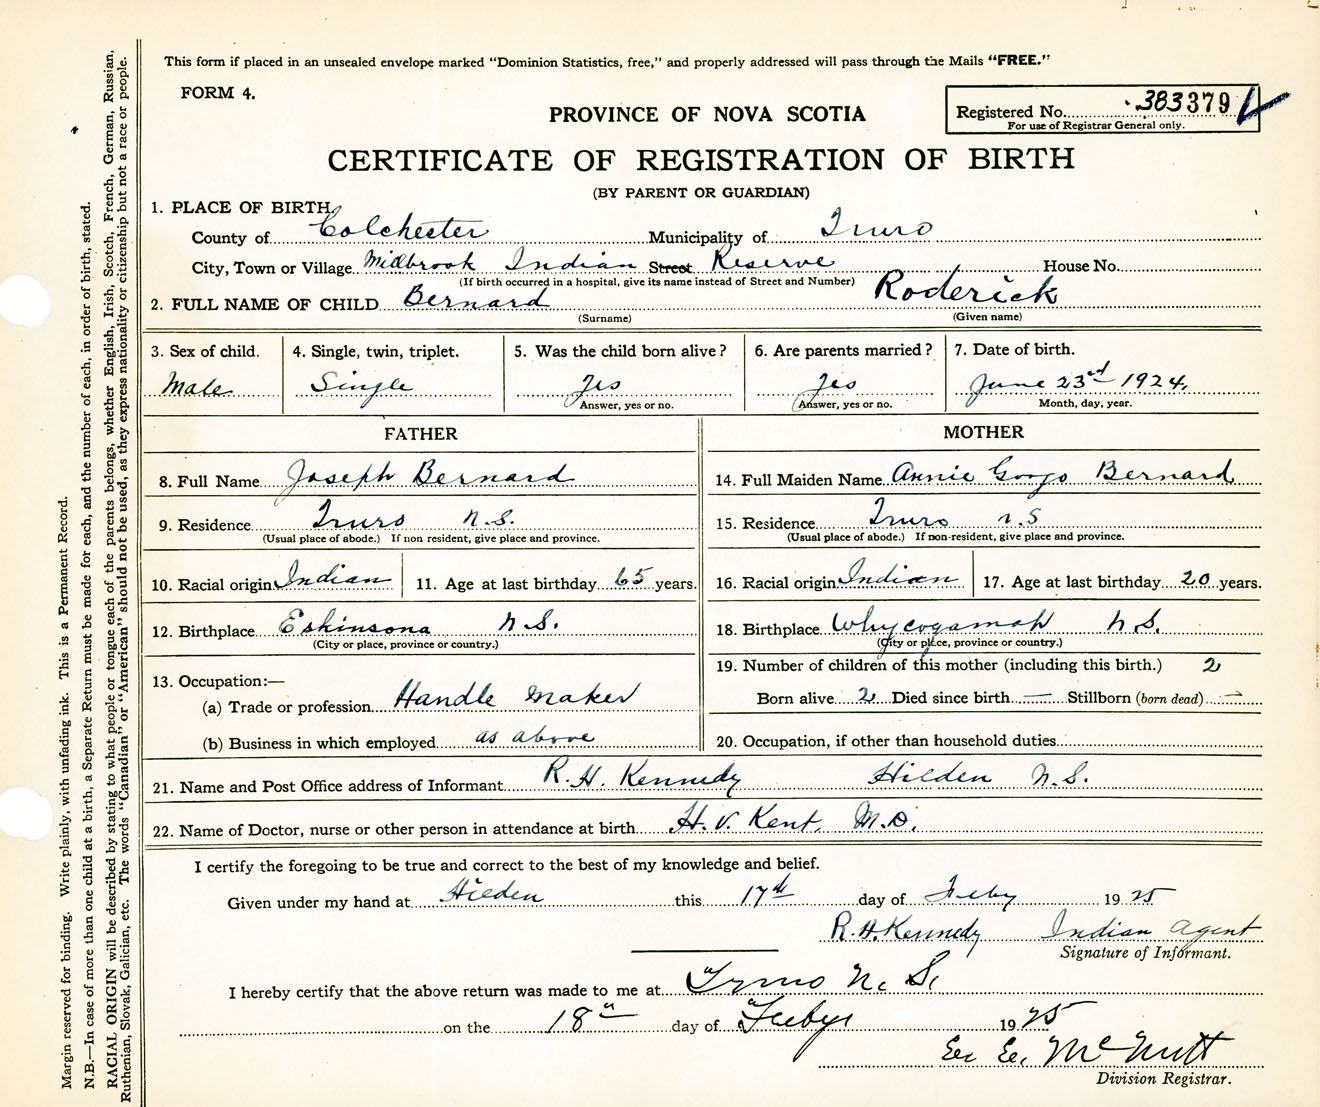 This form if placed in an unsealed envelope marked "Dominion Statistics, free," and properly addressed will pass through the Mails "FREE."
FORM 4.
PROVINCE OF NOVA SCOTIA
Registered No. 383379
For use of Registrar General only.
CERTIFICATE OF REGISTRATION OF BIRTH
(BY PARENT OR GUARDIAN)
1. PLACE OF BIRTH
County of Colchester Municipality of Truro
City, Town or Village Millbrook Indian Street Reserve House No.
(If birth occurred in a hospital, give its name instead of Street and Number)
2. FULL NAME OF CHILD Bernard Roderick
(Surname) (Given name)
3. Sex of child. 4. Single, twin, triplet. 5. Was the child born alive? 6. Are parents married? 7. Date of birth.
Male Single Yes Yes June 23rd 1924.
Answer, yes or no. Answer, yes or no. Month, day, year.
FATHER MOTHER
8. Full Name Joseph Bernard 14. Full Maiden Name Annie Googo Bernard
9. Residence Truro N.S. 15. Residence Truro N.S
(Usual place of abode.) If non resident, give place and province. (Usual place of abode.) If non-resident, give place and province.
10. Racial origin Indian 11. Age at last birthday 65 years. 16. Racial origin Indian 17. Age at last birthday 20 years.
12. Birthplace Eskinsona N.S. 18. Birthplace Whycogamah N.S.
(City or place, province or country.) (City or place, province or country.)
19. Number of children of this mother (including this birth.) 2
13. Occupation:—
(a) Trade or profession Handle maker Born alive 2 Died since birth — Stillborn (born dead) —
(b) Business in which employed as above 20. Occupation, if other than household duties
21. Name and Post Office address of Informant R. H. Kennedy Hilden N.S.
22. Name of Doctor, nurse or other person in attendance at birth H. V. Kent, M.D.
I certify the foregoing to be true and correct to the best of my knowledge and belief.
Given under my hand at Hilden this 17th day of Feby 1925
R. H. Kennedy Indian Agent
Signature of Informant.
I hereby certify that the above return was made to me at Truro N. S.
on the 18" day of Feby 1925
McNutt
Division Registrar.
Margin reserved for binding. Write plainly, with unfading ink. This is a Permanent Record.
N.B.—In case of more than one child at a birth, a Separate Return must be made for each, and the number of each, in order of birth, stated.
RACIAL ORIGIN will be described by stating to what people or tongue each of the parents belongs, whether English, Irish, Scotch, French, German, Russian,
Ruthenian, Slovak, Galician, etc. The words "Canadian" or "American" should not be used, as they express nationality or citizenship but not a race or people.